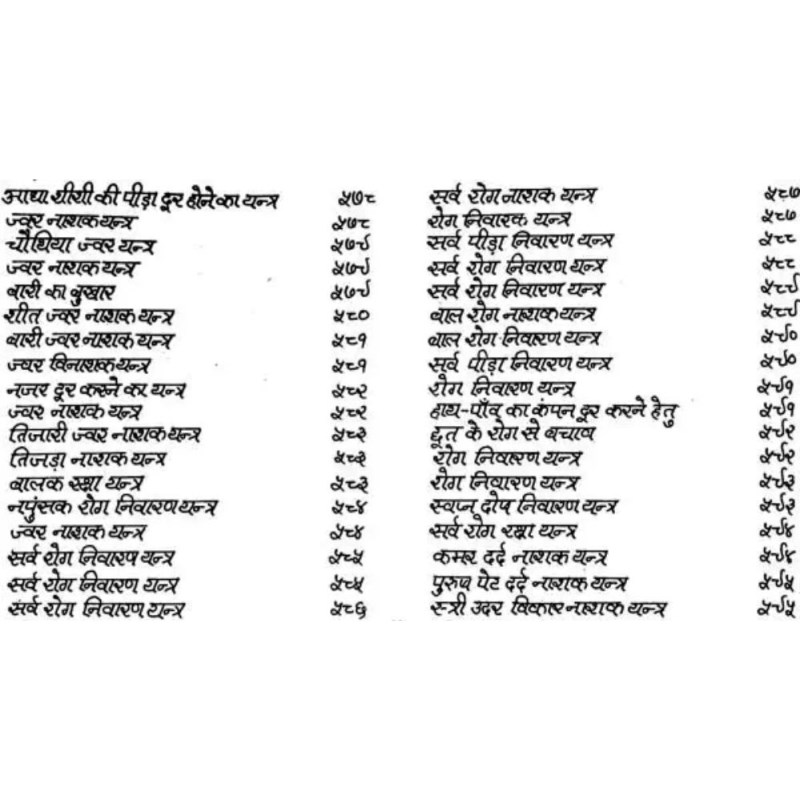 आधा शीशी की पीड़ा दूर होने का यन्त्र ५७८
ज्वर नाशक यन्त्र ५७८
चौथिया ज्वर यन्त्र ५७९
ज्वर नाशक यन्त्र ५७९
बारी का बुखार ५७९
शीत ज्वर नाशक यन्त्र ५८०
बारी ज्वर नाशक यन्त्र ५८१
ज्वर विनाशक यन्त्र ५८१
नजर दूर करने का यन्त्र ५८२
ज्वर नाशक यन्त्र ५८२
तिजारी ज्वर नाशक यन्त्र ५८३
तिजड़ा नाशक यन्त्र ५८३
बालक रक्षा यन्त्र ५८३
नपुंसक रोग निवारण यन्त्र ५८४
ज्वर नाशक यन्त्र ५८४
सर्व रोग निवारण यन्त्र ५८५
सर्व रोग निवारण यन्त्र ५८५
सर्व रोग निवारण यन्त्र ५८६
सर्व रोग नाशक यन्त्र ५८७
रोग निवारक यन्त्र ५८७
सर्व पीड़ा निवारण यन्त्र ५८८
सर्व रोग निवारण यन्त्र ५८८
सर्व रोग निवारण यन्त्र ५८९
बाल रोग नाशक यन्त्र ५८९
बाल रोग निवारण यन्त्र ५९०
सर्व पीड़ा निवारण यन्त्र ५९०
रोग निवारण यन्त्र ५९१
हाथ-पाँव का कंपन दूर करने हेतु ५९१
छूत के रोग से बचाव ५९२
रोग निवारण यन्त्र ५९२
रोग निवारण यन्त्र ५९३
स्वप्न दोष निवारण यन्त्र ५९३
सर्व रोग रक्षा यन्त्र ५९४
कमर दर्द नाशक यन्त्र ५९४
पुरुष पेट दर्द नाशक यन्त्र ५९५
स्त्री उदर विकार नाशक यन्त्र ५९५